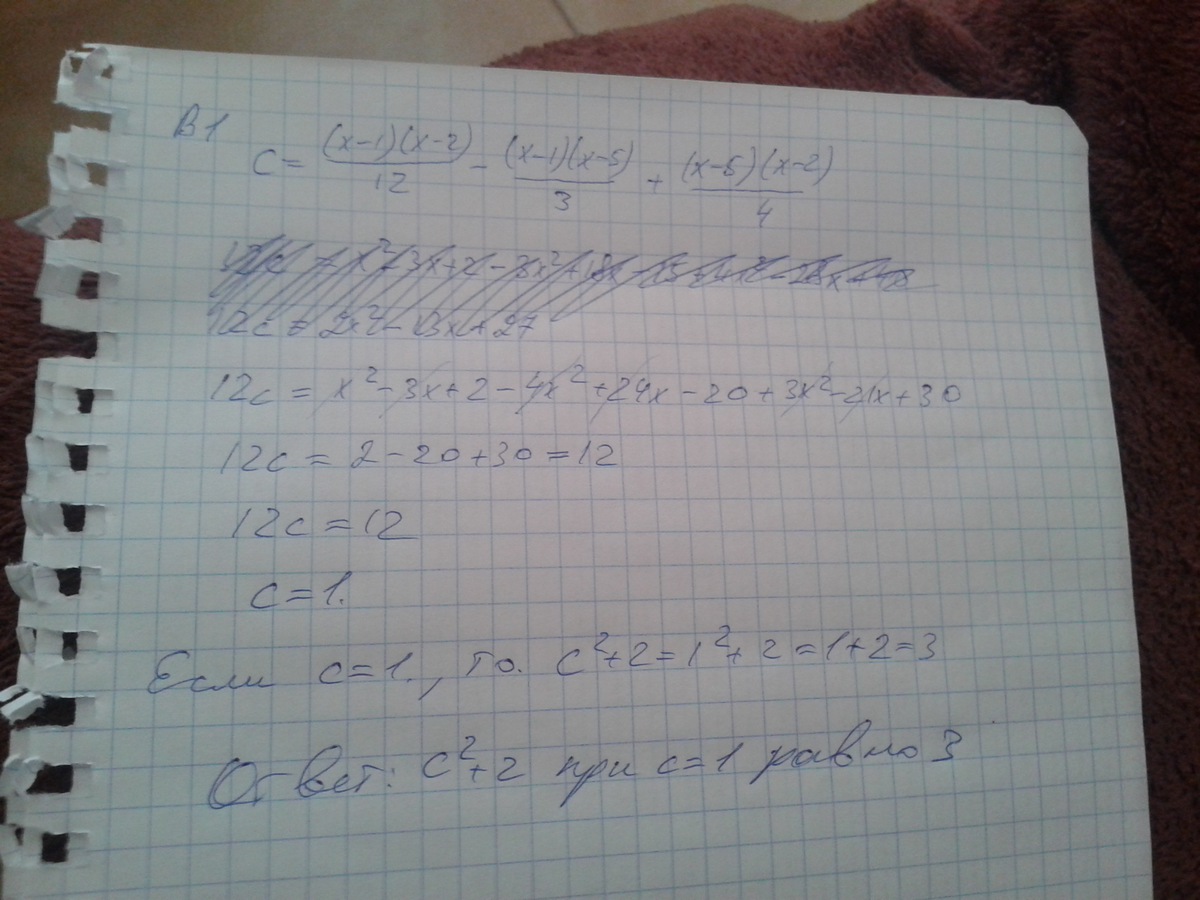 В1
c = (x-1)(x-2)/12 - (x-1)(x-5)/3 + (x-5)(x-2)/4
12c = 2x² - 13x + 27
12c = x² - 3x + 2 - 4x² + 24x - 20 + 3x² - 21x + 30
12c = 2 - 20 + 30 = 12
12c = 12
c = 1.
Если c = 1., то. c² + 2 = 1² + 2 = 1 + 2 = 3
Ответ: c² + 2 при c = 1 равно 3